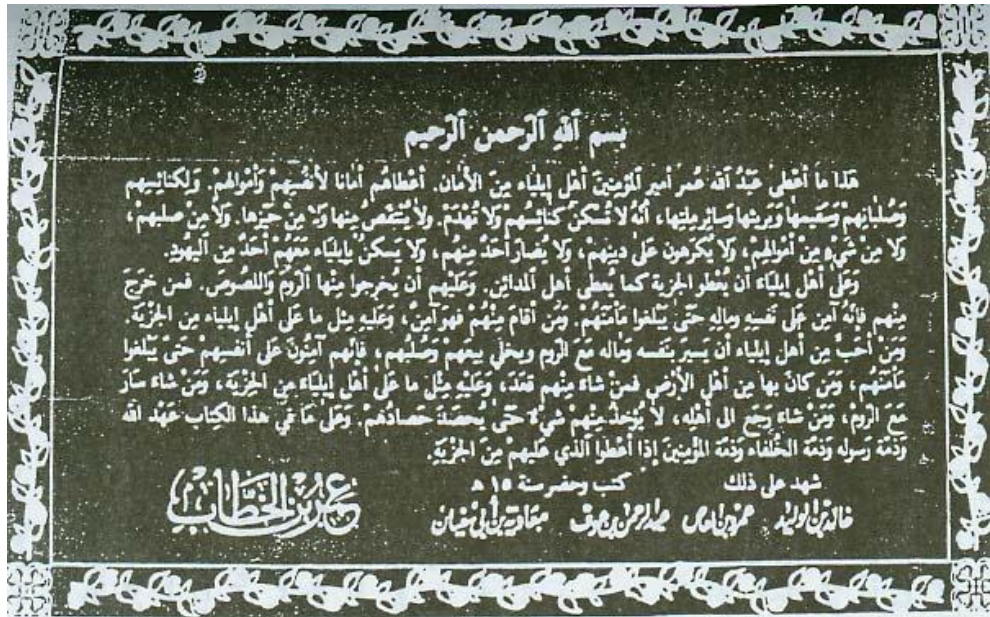 بسم ٱللهِ ٱلرّحمن ٱلرّحيم
هَذا مَا أعْطى عَبْدُ ٱلله عُمر أمير ٱلمؤمنِينَ أهْل إيلياء مِنَ الأمان. أعْطاهُم أمَانا لأنفُسِهِمْ وَأمْوالِهمْ. وَلكنائِسِهم
وَصُلبَانِهِمْ وَسَقِيمهَا وَبَرِيئها وَسائِرِ مِلَّتِها، أنّه لا تُسكنُ كنائِسُهمْ وَلا تُهْدَمُ. ولا يُنتَقَصُ مِنها وَلا مِنْ حَيّزها. وَلا مِنْ صلبهمْ،
وَلا مِنْ شيْءٍ مِنْ أمْوالِهمْ، وَلا يُكرَهون عَلى دينِهِمْ، وَلا يُضارَ أحَدٌ مِنهُم، وَلا يَسكنُ بِإيلياء مَعَهُمْ أحَدٌ مِن ٱليَهُودِ.
وَعَلى أهْل إيلِيَاء أن يُعْطُو الجزية كما يُعطى أهل ٱلمدائِن. وَعَلَيهم أن يُخرِجوا مِنْها ٱلرُّومَ وَاللصُوصَ. فمن خَرَجَ
مِنْهم فإنّهُ آمن عَلى نَفسِهِ ومالِهِ حَتّى يَبلغوا مَأمَنَهُمْ. وَمَن أقامَ مِنهُمْ فهوَ آمِنٌ، وَعَليهِ مِثل ما عَلى أهْلِ إيلياء مِن الجزْيَة.
وَمَنْ أحَبَّ مِن أهل إيلياء أن يَسيرَ بِنَفسه وَماله مَعَ الرّوم ويخلي بِيعَهمْ وَصُلبهم، فَإنّهم آمِنُونَ عَلى أنفسهِمْ حَتى يَبْلغوا
مَأمَنَهُم، وَمَن كانَ بها مِن أهْلِ الأرْضِ فمنْ شاءَ مِنْهم قعَدَ، وَعَلَيْهِ مِثْلُ ما عَلى أهْلِ إيلِيَاء مِن الجِزيَة، وَمَنْ شاءَ سَارَ
مَعَ الرّومْ، وَمَنْ شاءَ رَجَعَ الى أهْلِه، لا يُؤخذُ مِنْهمْ شيْءٌ حَتّى يُحصَدَ حَصادُهمْ. وَعَلى مَا في هذا الكِتاب عَهْد الله
وَذمّة رَسوله وَذمّة الخُلفاء وَذمّة المؤمِنِينَ إذا أعْطَوا الّذي عَليهمْ مِنَ الجزْيَةِ.
شهد على ذلك كتب وحضر سنة ١٥ ه
خالد بن الوليد عمرو بن العاص عبدالرحمن بن عوف معاوية بن أبي سفيان
عمر بن الخطاب